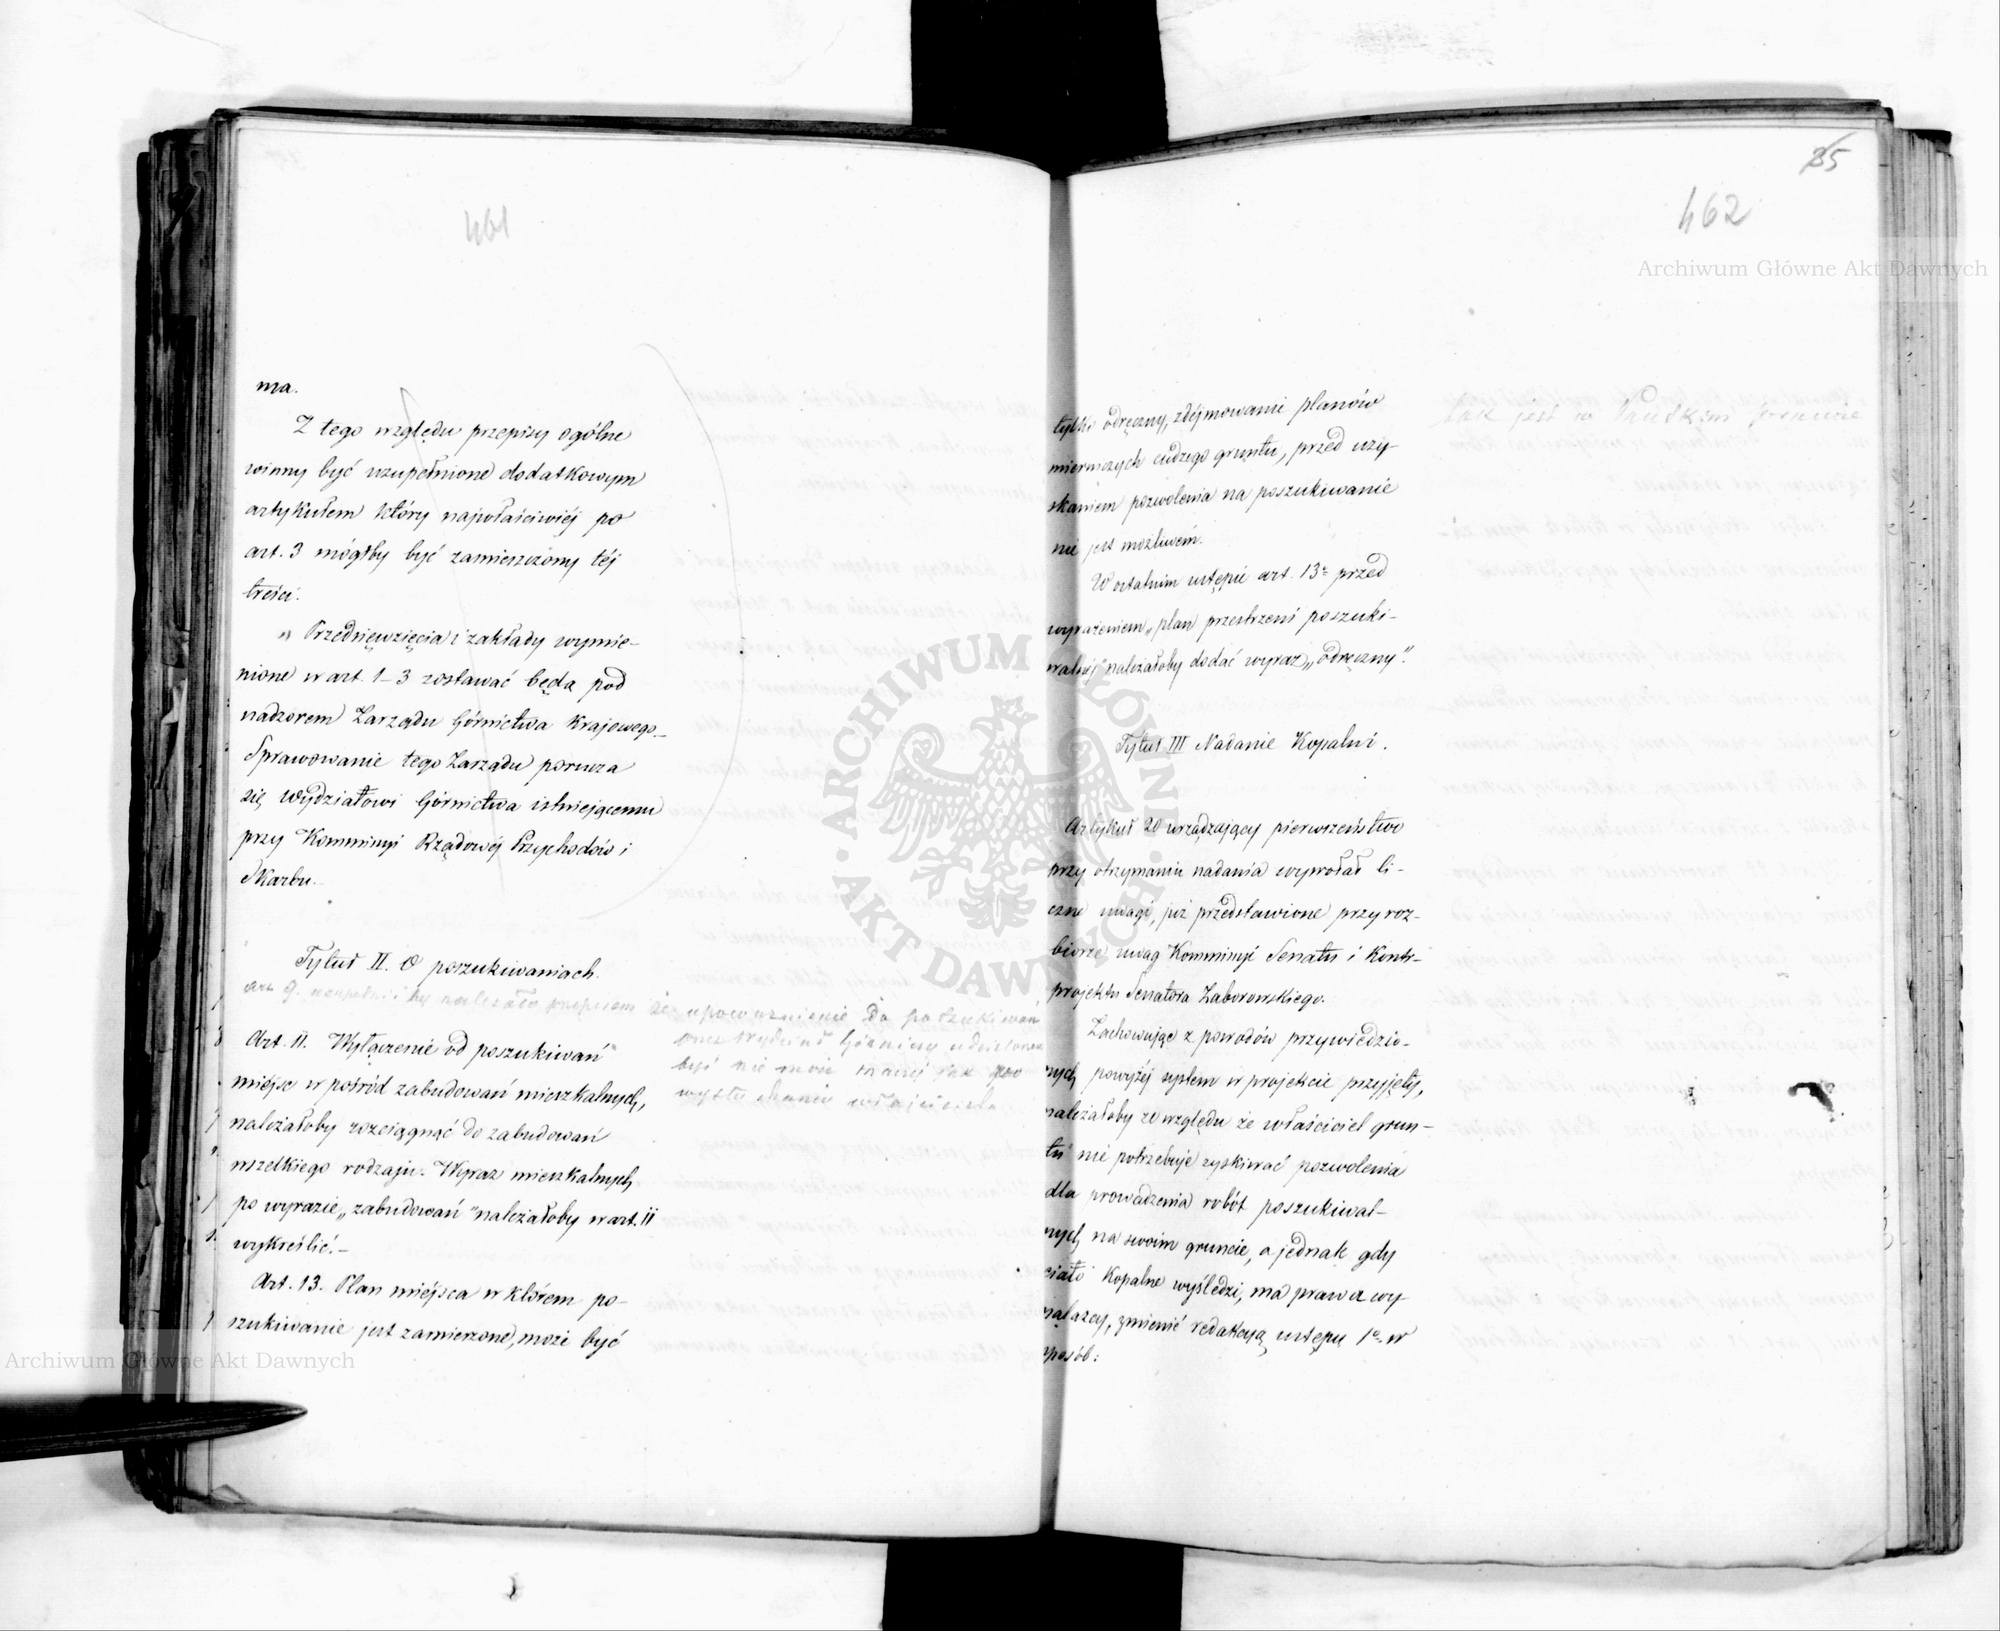 461
ma.
Z tego względu przepisy ogólne
winny być uzupełnione dodatkowym
artykułem który najwłaściwiéj po
art. 3 mógłby być zamieszczony téj
treści.
„Przedsięwzięcia i zakłady wymie-
nione w art. 1-3 zostawać będą pod
nadzorem Zarządu Górnictwa Krajowego.-
Sprawowanie tego Zarządu porucza
się Wydziałowi Górnictwa istniejącemu
przy Kommissyi Rządowéj Przychodów i
Skarbu.-
Tytuł II. O poszukiwaniach.
art 9. należało przepisem że upoważnienie do poszukiwań
przez Wydział Górniczy udzielone
być nie może inaczéj jak po
wysłuchaniu właściciela
Art. 11. Wyłączenie od poszukiwań
miejsc w pośród zabudowań mieszkalnych,
należałoby rozciągnąć do zabudowań
wszelkiego rodzaju. Wyraz mieszkalnych
po wyrazie „zabudowań" należałoby w art. 11
wykreślić.-
Art. 13. Plan miéjsca w którem po-
szukiwanie jest zamierzone, może być
35
462
tylko odręczny, zdéjmowanie planów
mierniczych cudzego gruntu, przed uzy-
skaniem pozwolenia na poszukiwanie
nie jest możliwém.
W ostatnim ustępie art. 13º przed
wyrażeniem „plan przestrzeni poszuki-
walnéj" należałoby dodać wyraz „odręczny".
tak jest w Pruskim prawie
Tytuł III Nadanie Kopalni.
Artykuł 20 urządzający pierwszeństwo
przy otrzymaniu nadania wywołał li-
czne uwagi, już przedstawione przy roz-
biorze uwag Kommissyi Senatu i Kontr-
projektu Senatora Zaborowskiego.
Zachowując z powodów przywiedzio-
nych powyżéj system w projekcie przyjęty,
należałoby ze względu że właściciel grun-
tu nie potrzebuje zyskiwać pozwolenia
dla prowadzenia robót poszukiwal-
nych na swoim gruncie, a jednak gdy
ciało Kopalne wyśledzi, ma prawa wy-
nalazcy, zmienić redakcyą ustępu 1º w
sposób:
Archiwum Główne Akt Dawnych
Archiwum Główne Akt Dawnych
ARCHIWUM GŁÓWNE · AKT DAWNYCH ·